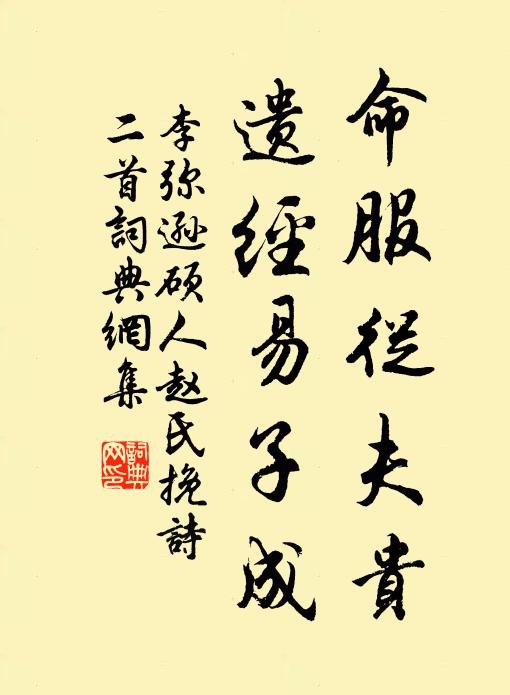 命服從夫貴
遺經易子成
李弥遜硕人赵氏挽詩
二首詞典網集
詞典网印